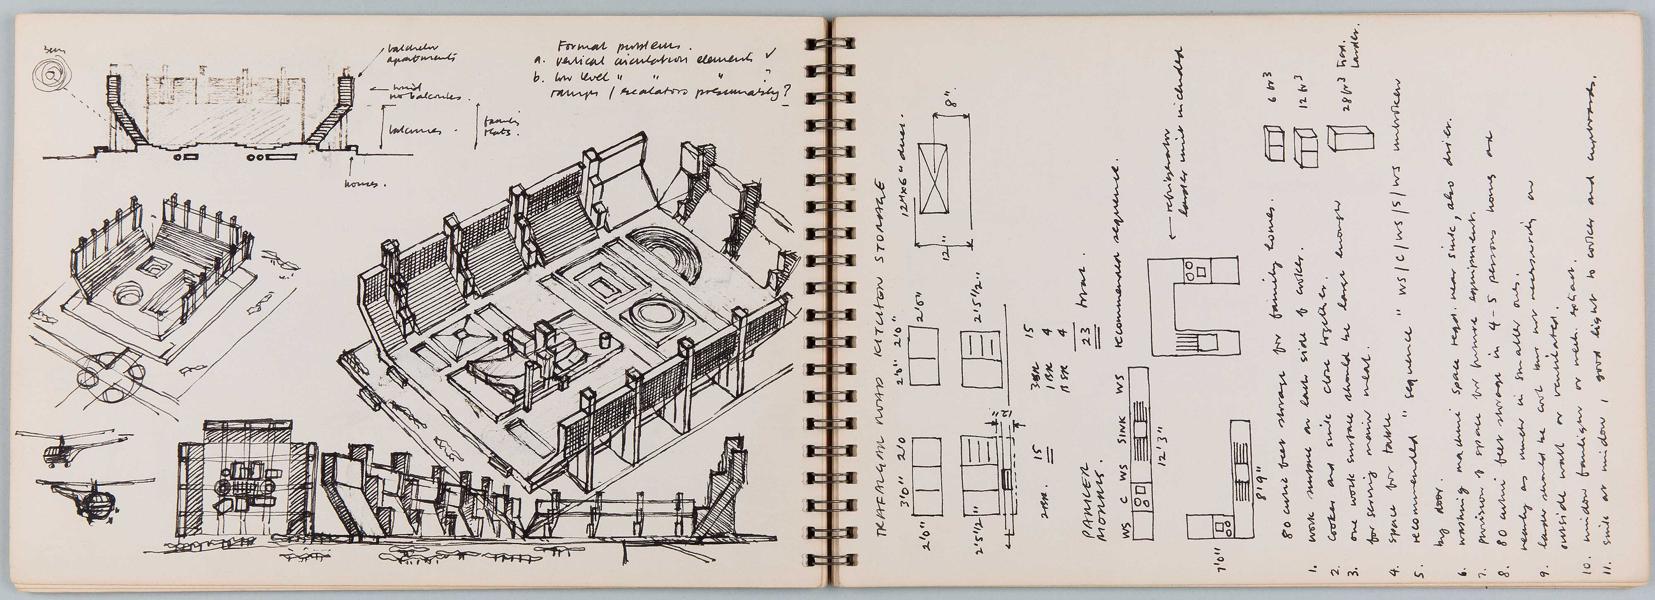 sun
bachelor
apartments
maid
no balconies.
balconies.
family
flats.
homes.
Formal problems.
a. vertical circulation elements ✓
b. low level " " " ?
ramps / escalators presumably?
TRAFALGAR ROAD KITCHEN STORAGE
12"
8"
3'0" 2'0
2'0" 2'0"
2'0"
2'0"
2'5½"
2'5½"
12"
15
3 BR 15
1 BR 4
4
23
PARKER
MORRIS.
WS C WS SINK WS recommended sequence.
12'3"
← refrigerator
7'0"
8'9"
6 ft3
12 ft3
28 ft3
larder.
80 cubic feet storage for family homes.
1. work surface on each side of cooker.
2. cooker and sink close together.
3. one work surface should be large enough
for serving main meal.
4. space for table
5. recommended " sequence " ws/c/ws/s/ws unbroken
by door.
6. washing machine space reqd. near sink, also drier.
7. provision of space for future equipment.
8. 80 cubic feet storage in 4-5 persons homes and
nearly as much in smaller ones.
9. larder should be cool but not necessarily on
outside wall or ventilated.
10.
11. sink at window, good light to cooker and